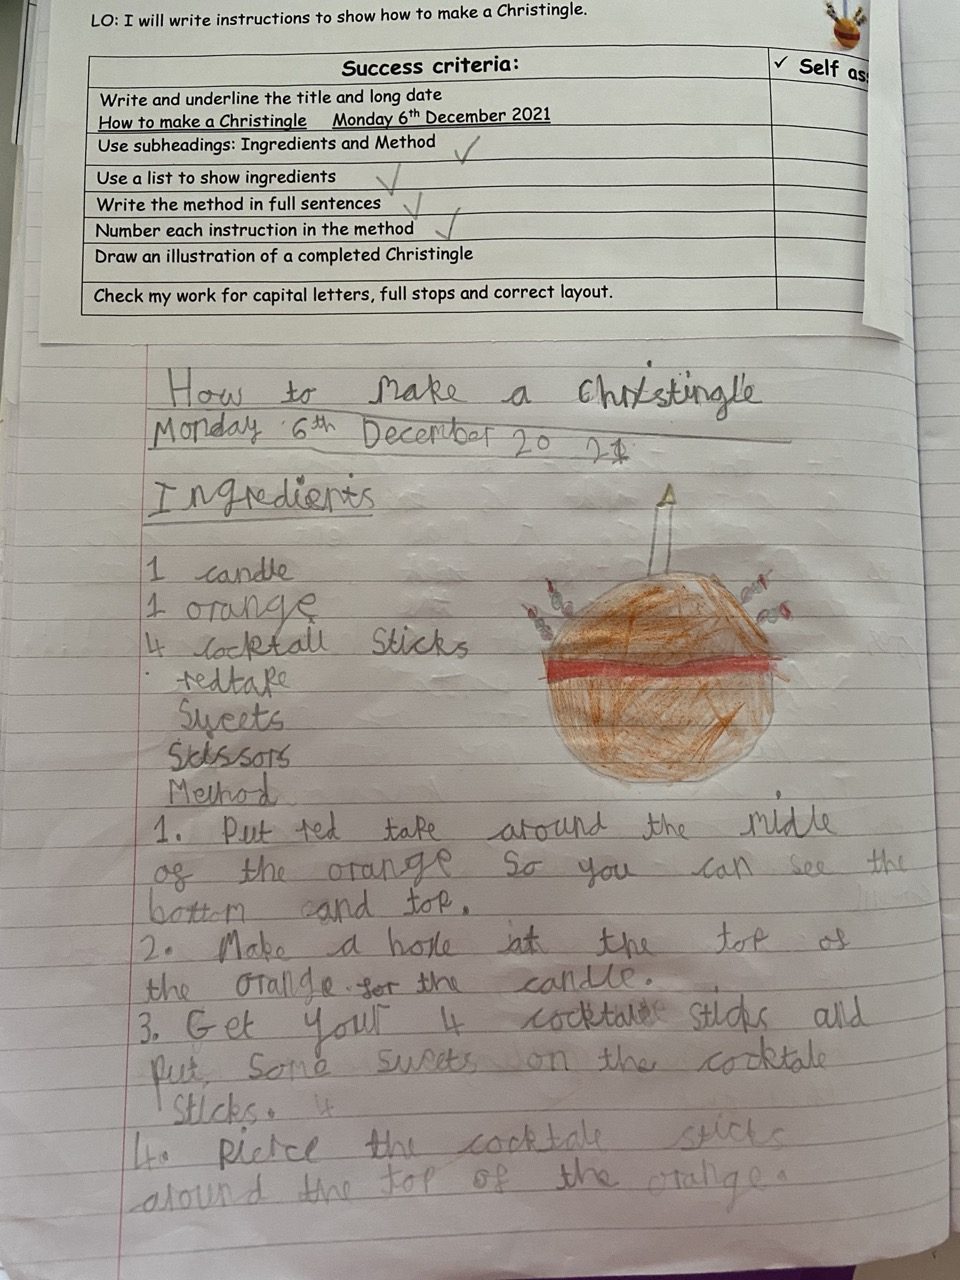 LO: I will write instructions to show how to make a Christingle.
Success criteria:
✓ Self as
Write and underline the title and long date
How to make a Christingle Monday 6th December 2021
Use subheadings: Ingredients and Method
Use a list to show ingredients
Write the method in full sentences
Number each instruction in the method
Draw an illustration of a completed Christingle
Check my work for capital letters, full stops and correct layout.
How to make a Christingle
Monday 6th December 2021
Ingredients
1 candle
1 orange
4 cocktail sticks
redtape
Sweets
Scissors
Method
1. Put red tape around the midle
of the orange so you can see the
bottom and top.
2. Make a hole at the top of
the orange for the candle.
3. Get your 4 cocktale sticks and
put some sweets on the cocktale
sticks. 4
4. Pierce the cocktale sticks
around the top of the orange.